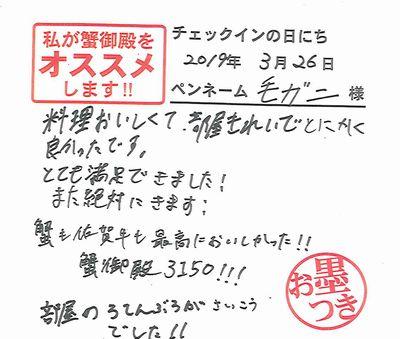 私が蟹御殿を
オススメ
します!!
チェックインの日にち
2019年 3月26日
ペンネーム 毛ガニ 様
料理おいしくて、部屋もきれいでとにかく
良かったです。
とても満足できました!
また絶対にきます!
蟹も佐賀牛も最高においしかった!!
蟹御殿3150!!!
部屋のろてんぶろがさいこう
でした!!
お墨つき